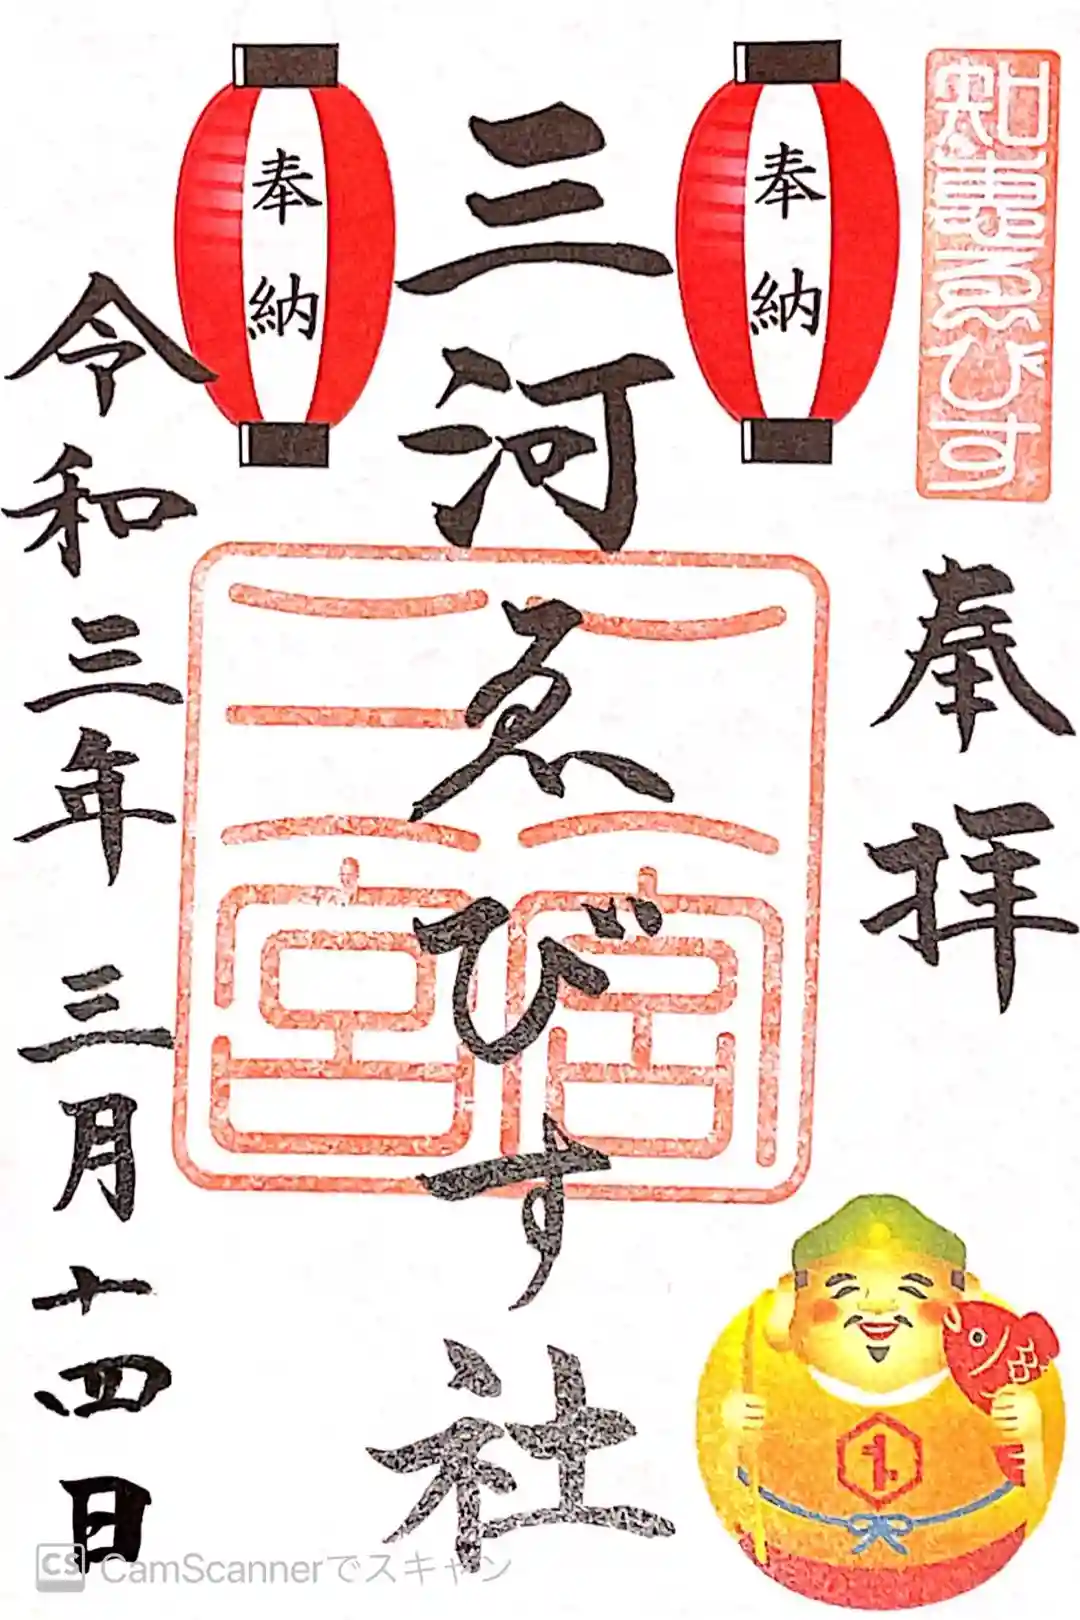 知恵ゑびす
奉拝
奉納
三河ゑびす社
奉納
令和三年三月十四日
CS CamScannerでスキャン